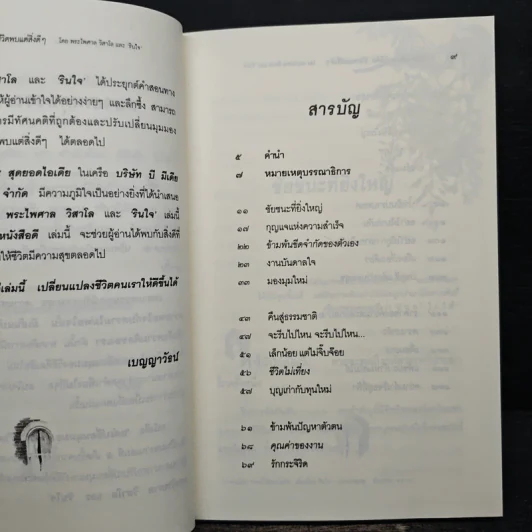 ชีวิตพบแต่สิ่งดีๆ โดย พระไพศาล วิสาโล และ 'รินใจ'
วิสาโล และ 'รินใจ' ได้ประยุกต์คำสอนทาง
ให้ผู้อ่านเข้าใจได้อย่างง่ายๆ และลึกซึ้ง สามารถ
การมีทัศนคติที่ถูกต้องและปรับเปลี่ยนมุมมอง
พบแต่สิ่งดีๆ ได้ตลอดไป
สุดยอดไอเดีย ในเครือ บริษัท บี มีเดีย
จำกัด มีความภูมิใจเป็นอย่างยิ่งที่ได้นำเสนอ
พระไพศาล วิสาโล และ รินใจ' เล่มนี้
หนังสือดี เล่มนี้ จะช่วยผู้อ่านได้พบกับสิ่งที่ดี
ให้ชีวิตมีความสุขตลอดไป
เล่มนี้ เปลี่ยนแปลงชีวิตคนเราให้ดีขึ้นได้
เบญญาวัธน์
๙
สารบัญ
๕ คำนำ
๗ หมายเหตุบรรณาธิการ
๑๑ ชัยชนะที่ยิ่งใหญ่
๑๗ กุญแจแห่งความสำเร็จ
๒๒ ข้ามพ้นขีดจำกัดของตัวเอง
๒๘ งานบันดาลใจ
๓๓ มองมุมใหม่
๔๓ คืนสู่ธรรมชาติ
๔๗ จะรีบไปไหน จะรีบไปไหน...
๕๑ เล็กน้อย แต่ไม่จิ๊บจ๊อย
๕๖ ชีวิตไม่เที่ยง
๕๗ บุญเก่ากับทุนใหม่
๖๑ ข้ามพ้นปัญหาตัวตน
๖๘ คุณค่าของงาน
๖๙ รักกระจิริด